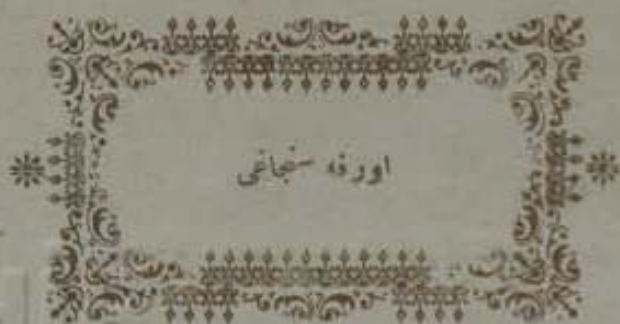 اورفه سنجاغی